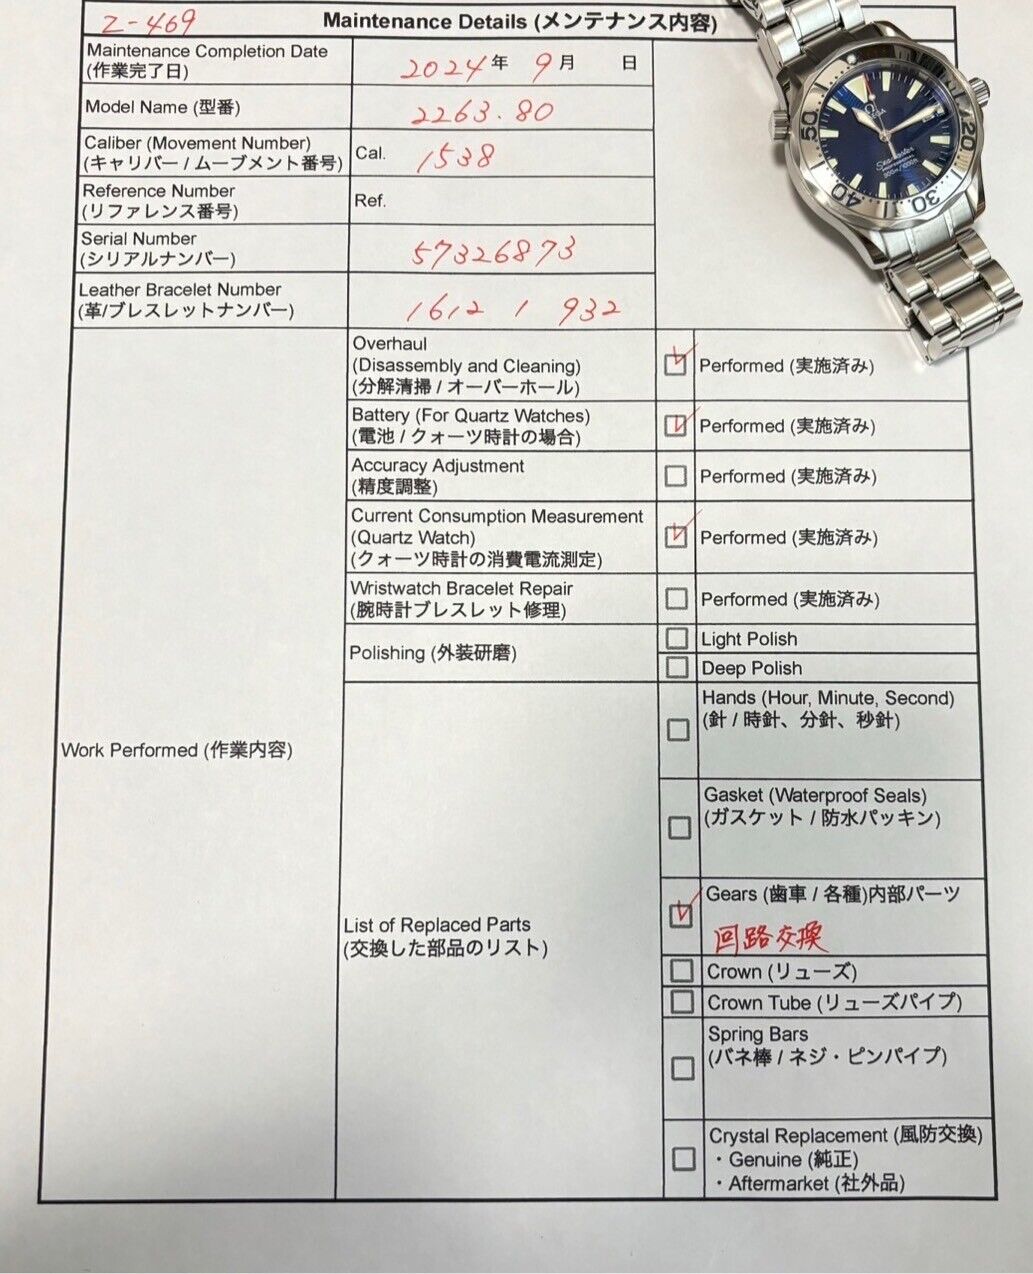 Z-469
Maintenance Details (メンテナンス内容)
Maintenance Completion Date
(作業完了日)
2024年 9月 日
Model Name (型番)
2263.80
Caliber (Movement Number)
(キャリバー / ムーブメント番号)
Cal. 1538
Reference Number
(リファレンス番号)
Ref.
Serial Number
(シリアルナンバー)
57326873
Leather Bracelet Number
(革/ブレスレットナンバー)
1612 1 932
Work Performed (作業内容)
Overhaul
(Disassembly and Cleaning)
(分解清掃 / オーバーホール)
Performed (実施済み)
Battery (For Quartz Watches)
(電池 / クォーツ時計の場合)
Performed (実施済み)
Accuracy Adjustment
(精度調整)
Performed (実施済み)
Current Consumption Measurement
(Quartz Watch)
(クォーツ時計の消費電流測定)
Performed (実施済み)
Wristwatch Bracelet Repair
(腕時計ブレスレット修理)
Performed (実施済み)
Polishing (外装研磨)
Light Polish
Deep Polish
List of Replaced Parts
(交換した部品のリスト)
Hands (Hour, Minute, Second)
(針 / 時針、分針、秒針)
Gasket (Waterproof Seals)
(ガスケット / 防水パッキン)
Gears (歯車 / 各種)内部パーツ
回路交換
Crown (リューズ)
Crown Tube (リューズパイプ)
Spring Bars
(バネ棒 / ネジ・ピンパイプ)
Crystal Replacement (風防交換)
・Genuine (純正)
・Aftermarket (社外品)
Ω
OMEGA
Seamaster
PROFESSIONAL
300m/1000ft
50
40
30
20